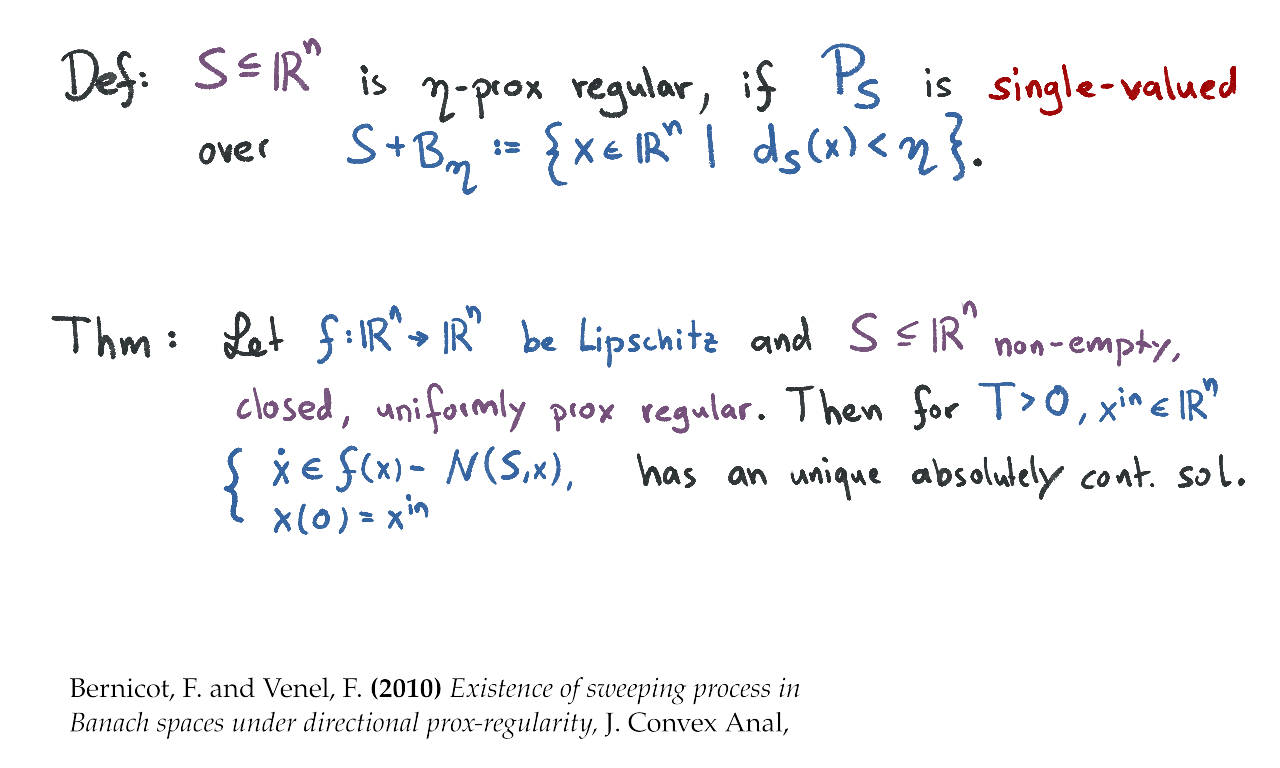 Def: S ⊆ ℝⁿ is η-prox regular, if P_S is single-valued
over S + B_η := { x ∈ ℝⁿ | d_S(x) < η }.
Thm: Let f: ℝⁿ → ℝⁿ be Lipschitz and S ⊆ ℝⁿ non-empty,
closed, uniformly prox regular. Then for T > 0, xⁱⁿ ∈ ℝⁿ
{ ẋ ∈ f(x) - N(S,x), has an unique absolutely cont. sol.
x(0) = xⁱⁿ
Bernicot, F. and Venel, F. (2010) Existence of sweeping process in
Banach spaces under directional prox-regularity, J. Convex Anal,